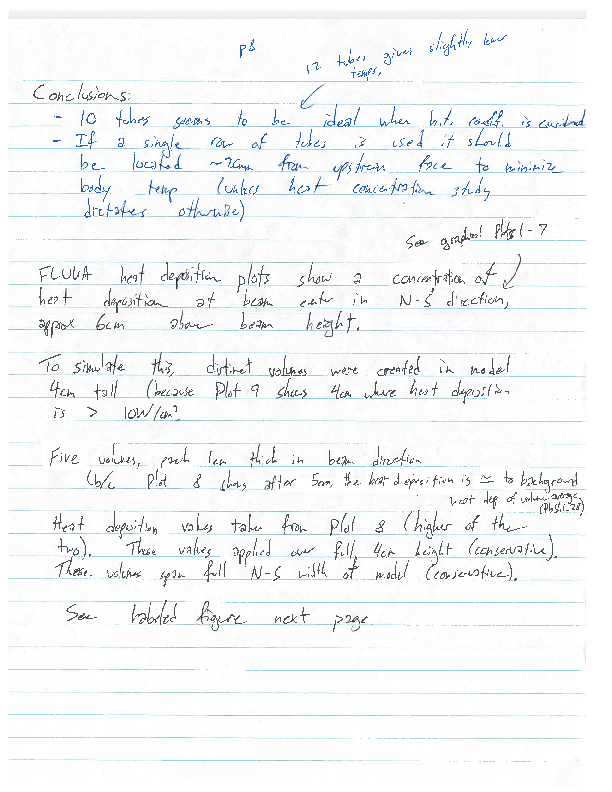 p8
12 tubes gives slightly lower
temps.
Conclusions:
- 10 tubes seems to be ideal when h.t. coeff. is considered
- If a single row of tubes is used it should
be located ~2cm from upstream face to minimize
body temp (unless heat concentration study
dictates otherwise)
See graphs! Plots 1-7
FLUKA heat deposition plots show a concentration of
heat deposition at beam center in N-S direction,
approx 6cm above beam height.
To simulate this, distinct volumes were created in model
4cm tall (because Plot 9 shows 4cm where heat deposition
is > 10W/cm³
Five volumes, each 1cm thick in beam direction
(b/c Plot 8 shows after 5cm, the heat deposition is ≃ to background
heat dep of volume average
Heat deposition values taken from Plot 8 (higher of the
two). These values applied over full 4cm height (conservative).
These volumes span full N-S width of model (conservative).
See labeled figure next page